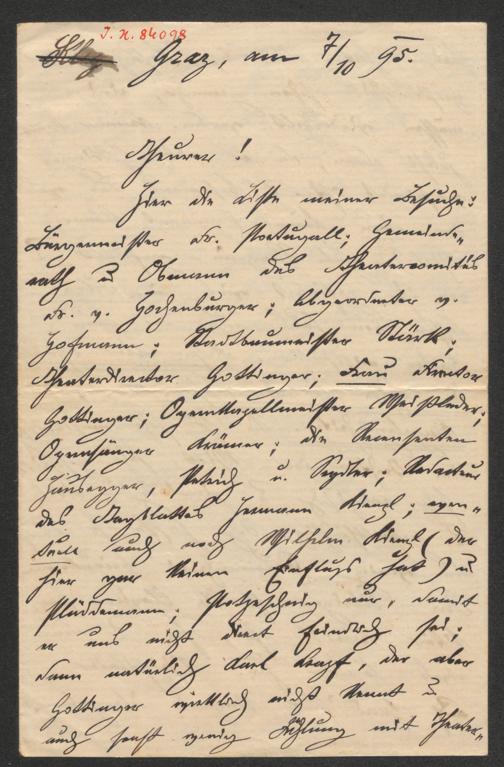 I. N. 84098
Graz, am 7/10 95.
Theurer!
Hier die Liste meiner Besuche:
Bürgermeister Dr. Portugall; Gemeinde„
rath u Obmann des Theatercomités
Dr. v. Hochenburger; Abgeordneter v.
Hofmann; Stadtbaumeister Stärk;
Theaterdirector Gottinger; Frau Director
Gottinger; Opernkapellmeister Weißleder;
Opernsänger Krämer; die Recensenten
Hausegger, Petrich u. Seydler; Redacteur
des Tagblattes Hermann Kienzl; even„
tuell auch noch Wilhelm Kienzl (der
hier gar keinen Einfluss hat) u
Plüddemann; Potpeschnig nur, damit
er uns nicht direct feindlich sei;
dann natürlich Karl Krapf, der aber
Gottinger wirklich nicht kennt u
auch sonst wenig Fühlung mit Theater„